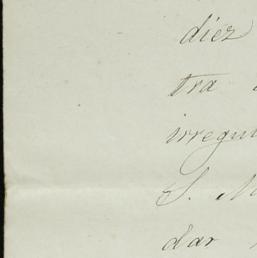 diez
tra
irregu
S. M
dar